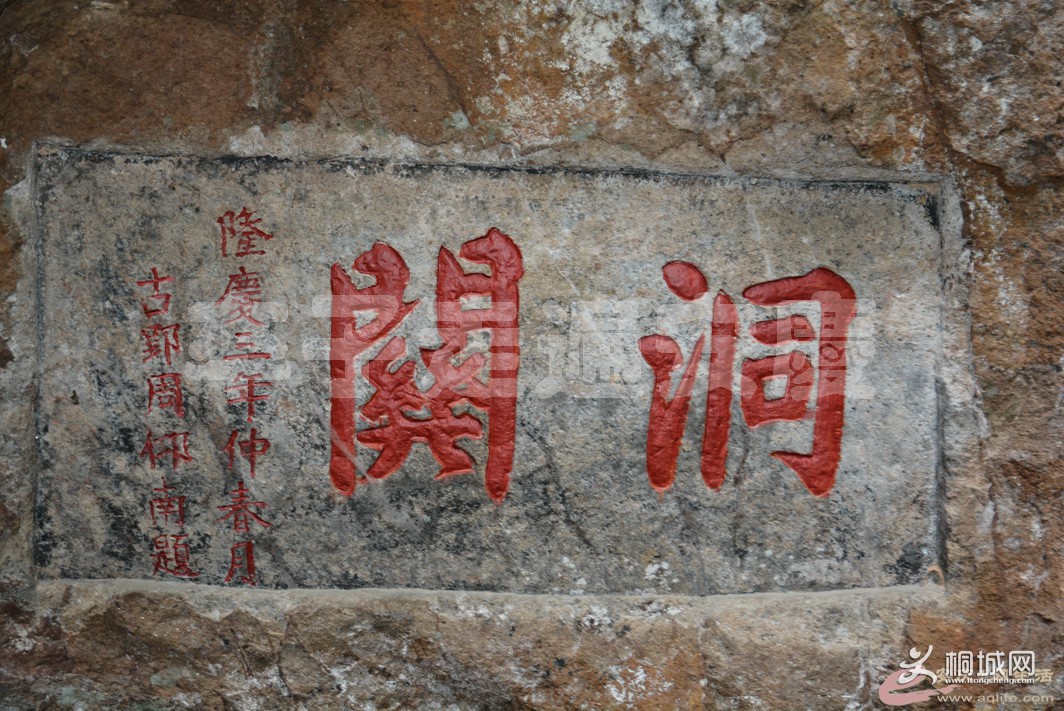 洞關
隆慶三年仲春月
古鄞周仰南題
桐城网
www.itongcheng.com
生活
www.aqlife.com